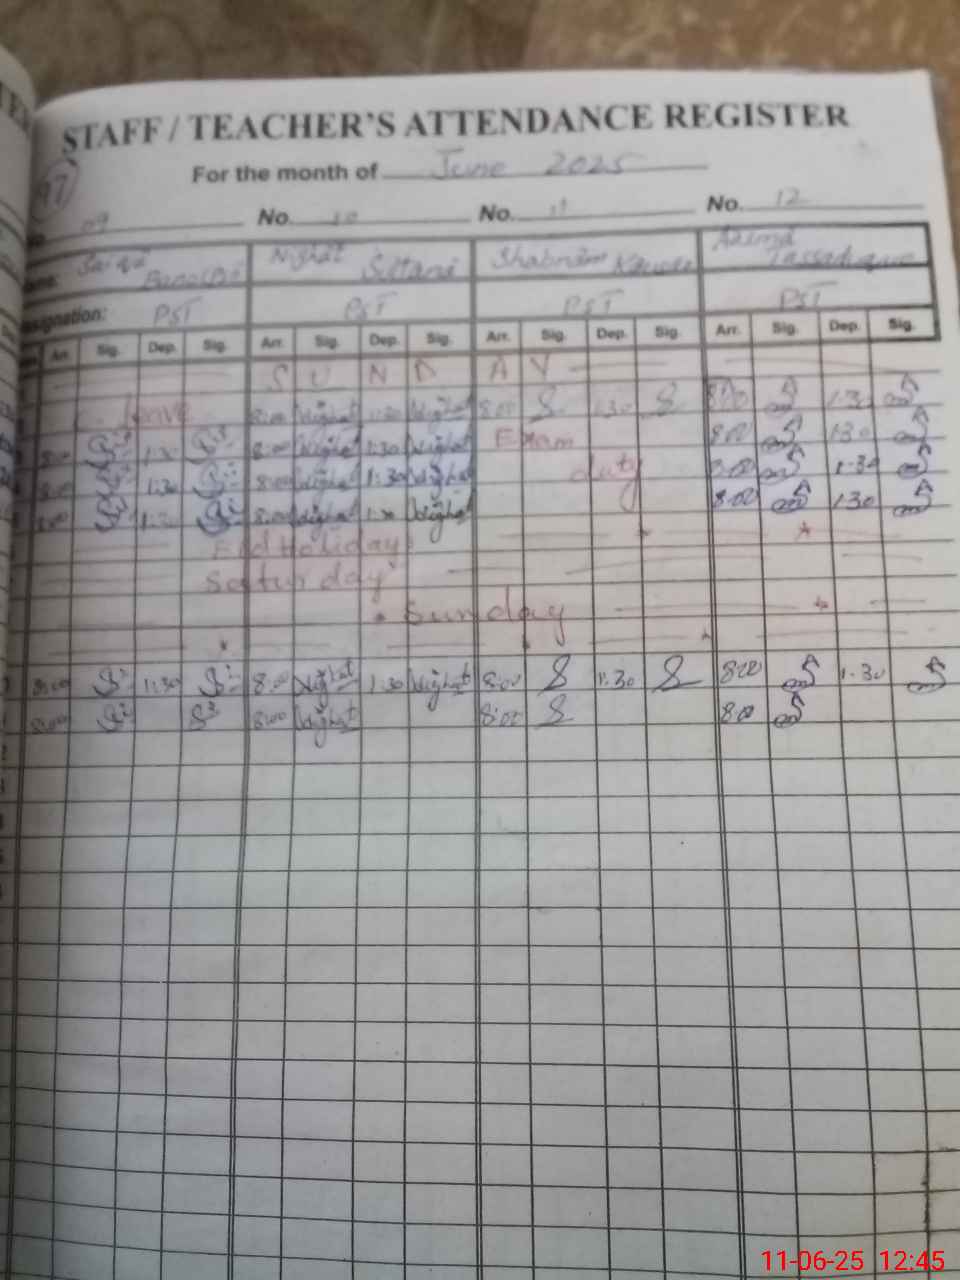 STAFF / TEACHER'S ATTENDANCE REGISTER
For the month of June 2025
97
09 No. 10 No. 11 No. 12
Saiqa Nighat Sultana Shabnam Kousar Asima
PST PST PST PST
Arr. Sig. Dep. Sig. Arr. Sig. Dep. Sig. Arr. Sig. Dep. Sig. Arr. Sig. Dep. Sig.
S U N D A Y
leave 8:00 Nighat 1:30 Nighat 8:00 1:30 8:00 1:30
8:00 1:30 8:00 Nighat 1:30 Nighat Exam 8:00 1:30
8:00 1:30 8:00 Nighat 1:30 Nighat duty 8:00 1:30
8:00 1:30 8:00 Nighat 1:30 Nighat 8:00 1:30
Eid Holiday
Saturday
Sunday
8:00 1:30 8:00 Nighat 1:30 Nighat 8:00 1:30 8:00 1:30
8:00 8:00 Nighat 8:00 8:00
11-06-25 12:45